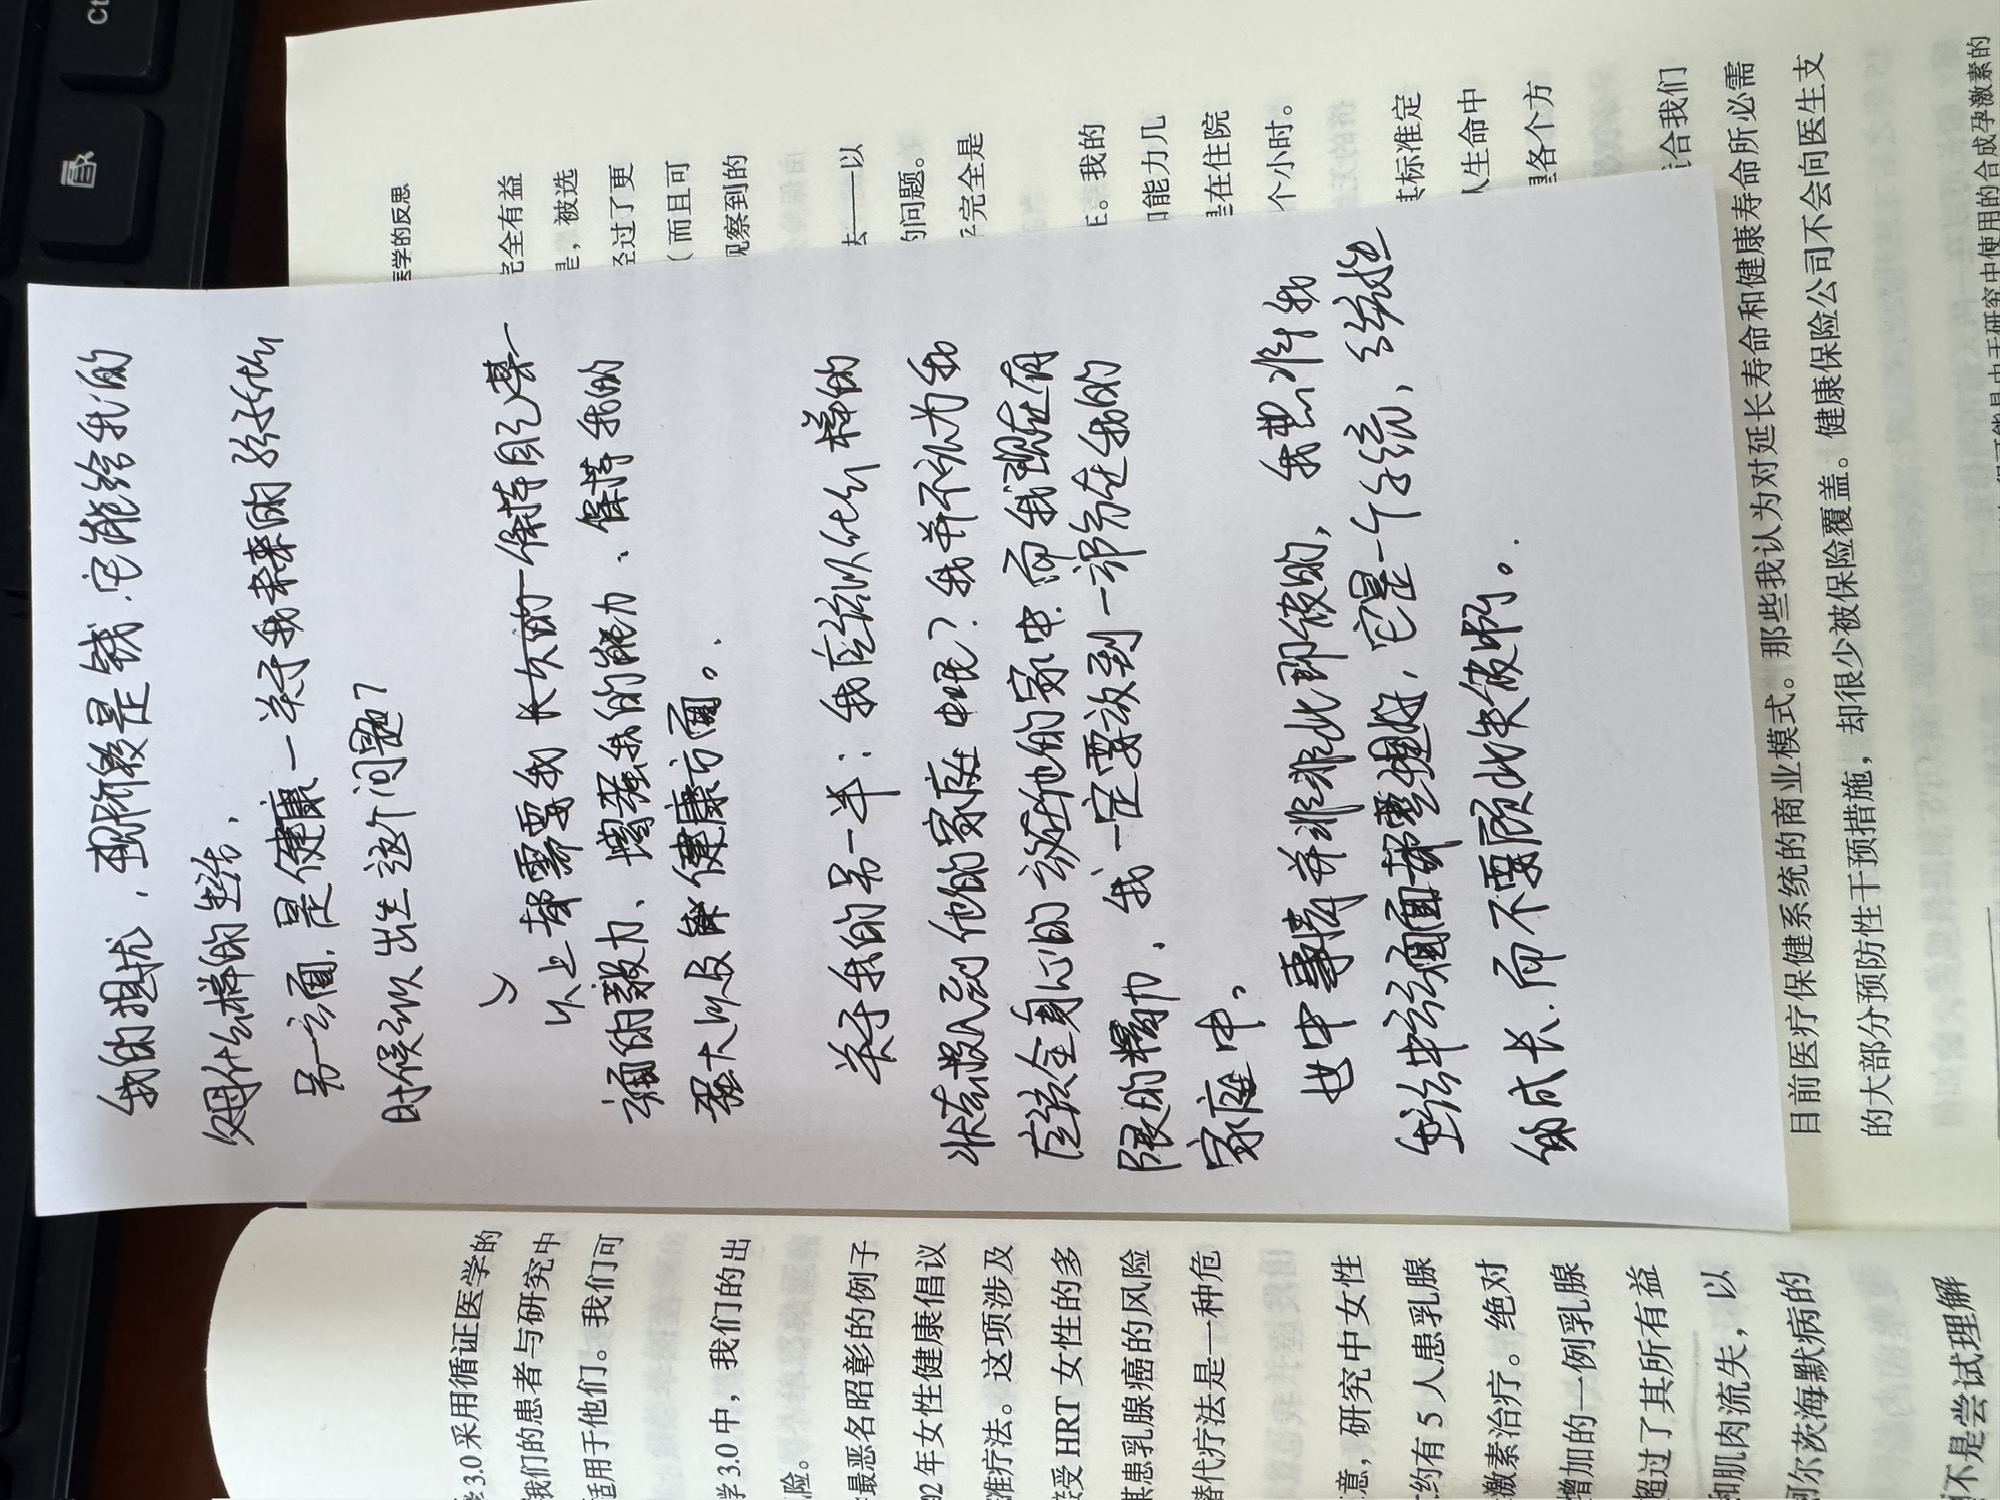 我的担忧，现阶段是钱.它能给我的
父母什么样的生活，
另一方面.是健康—关于我未来的孩子什么
时候可以出生这个问题？
以上都需要我长久的保持自己某一
方面的毅力、增强我的能力、保持我的
强大以及健康方面。
关于我的另一半：我应该以什么样的
状态投入到他的家庭中呢？我并不认为我
应该全身心的放在他的家中.而我现在有
限的精力、我一定要放到一部分在我的
家庭中。
世中事情并非非此即彼的，我想将我
生活中方方面面都整理好，它是一个系统、系统性
的成长.而不要顾此失彼啊。
医学的反思
完全有益
是，被选
经过了更
（而且可
观察到的
去——以
的问题。
完全是
E。我的
和能力几
是在住院
个小时。
其标准定
人生命中
各个方
合我们
目前医疗保健系统的商业模式。那些我认为对延长寿命和健康寿命所必需
的大部分预防性干预措施，却很少被保险覆盖。健康保险公司不会向医生支
3.0 采用循证医学的
我们的患者与研究中
适用于他们。我们可
学 3.0 中，我们的出
险。
最恶名昭彰的例子
02 年女性健康倡议
准疗法。这项涉及
接受 HRT 女性的多
其患乳腺癌的风险
替代疗法是一种危
意，研究中女性
约有 5 人患乳腺
激素治疗。绝对
增加的一例乳腺
超过了其所有益
和肌肉流失，以
阿尔茨海默病的
不是尝试理解
可能是由于研究中使用的合成孕激素的
Ct